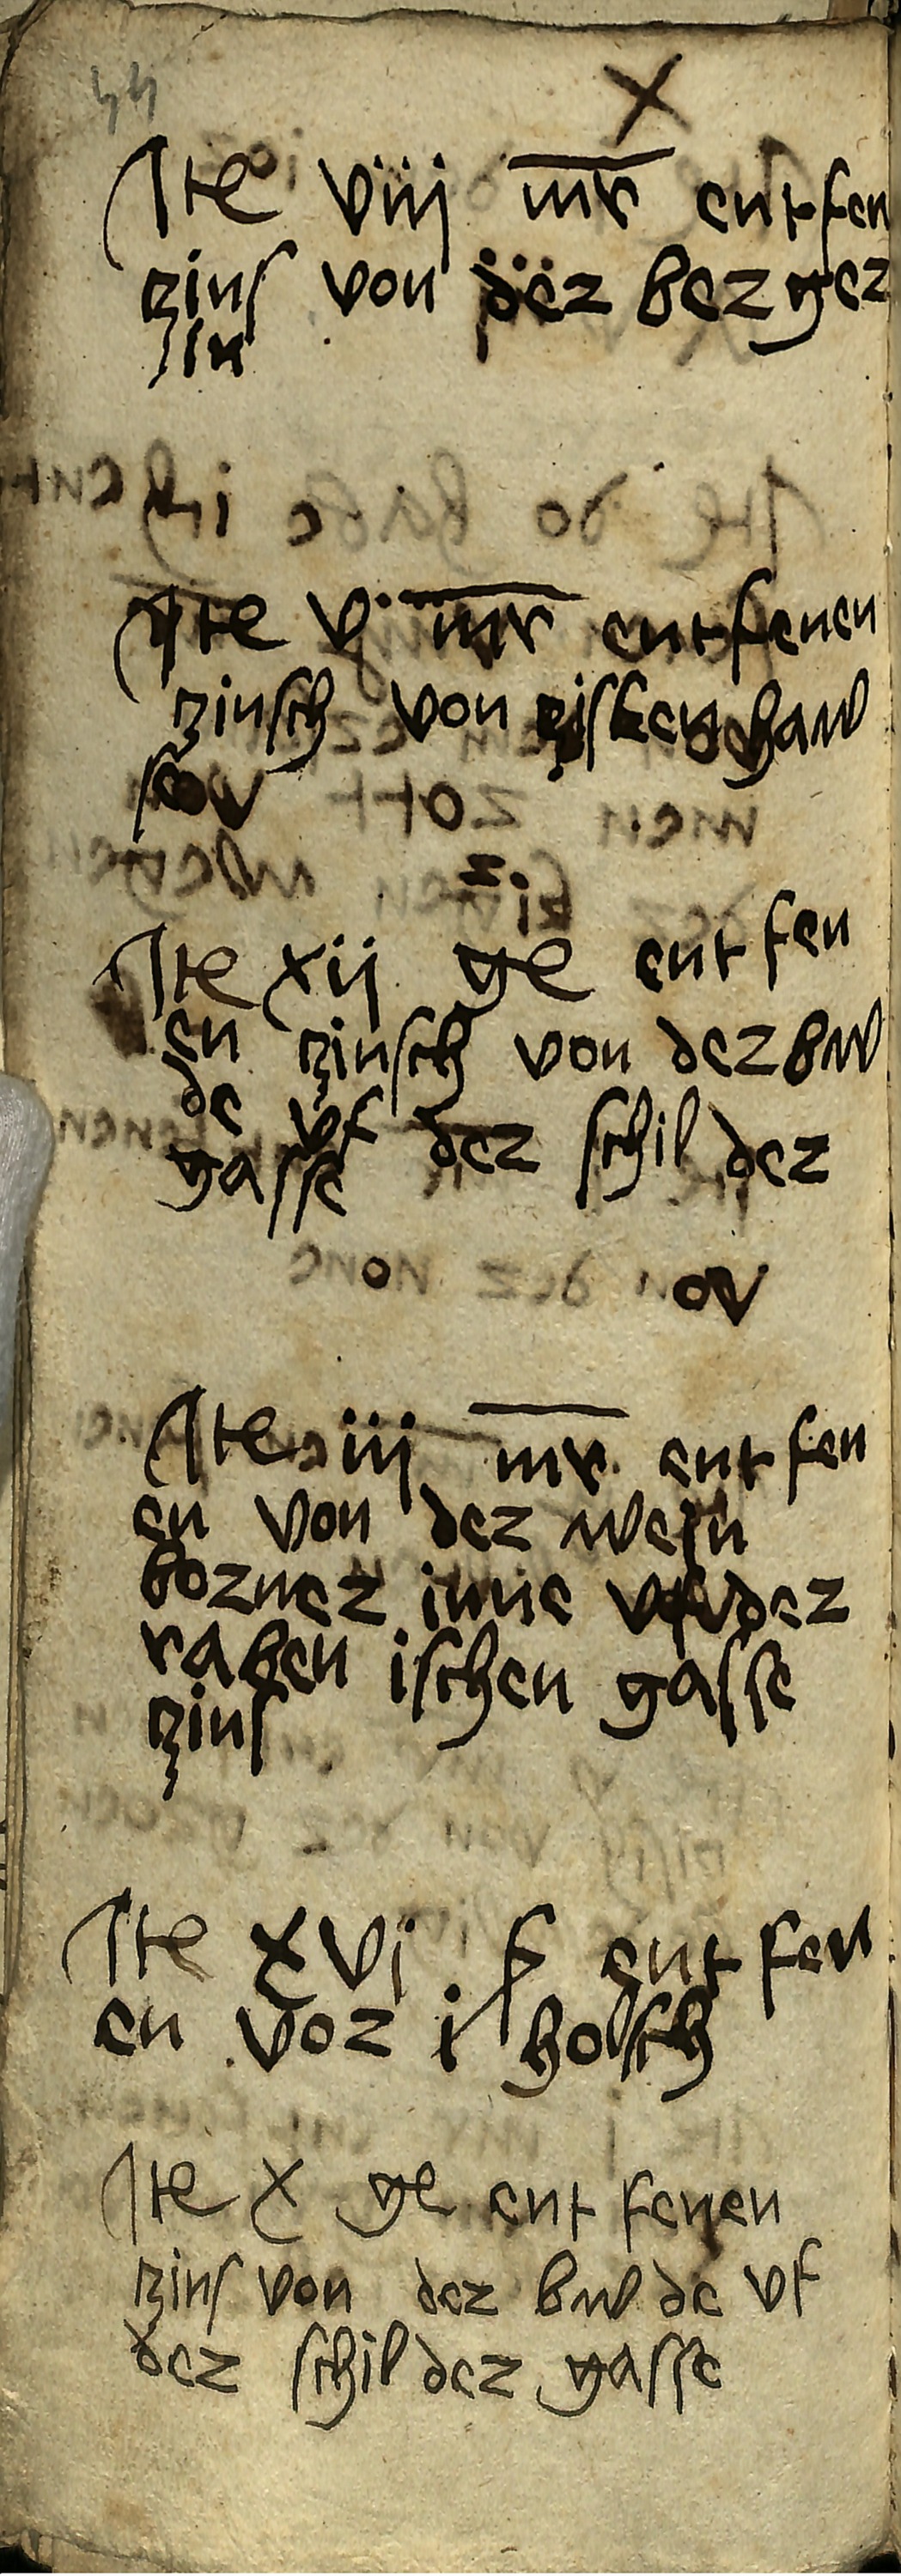 44
X
Ite viij mr entfen
zins von der berger
lin
Ite v mr entfenen
zinsch von haw
Ite xij ge entfen
en zinsch von der bw
de vf der schilder
gasse
ov
Ite iij mr entfen
en von der
borner inne vf der
raben ischen gasse
zins
Ite xvj f entfen
en vor i holsch
Ite x ge entfenen
zins von der bwde vf
der schilder gasse